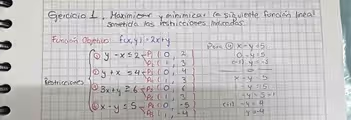 Ejercicio 1, Maximizar y minimizar la siguiente función lineal
sometida las restricciones indicadas
Función Objetivo: f(x,y)=2x+y
Restricciones
① y - x ≤ 2 → P₁ ( 0 , 2
P₂ ( 1 , 3
② y + x ≤ 4 → P₁ ( 0 , 4
( 1 , 3
③ 3x+y ≥ 6 → ( 0 , 6
( 1 ,
④ x - y ≤ 5 → P₁ ( 0 , -5
P₂ ( 1 , -4
Para ④ x - y = 5
0 - y = 5
x - y = 5
1 - y = 5
-y = 4
y = -4